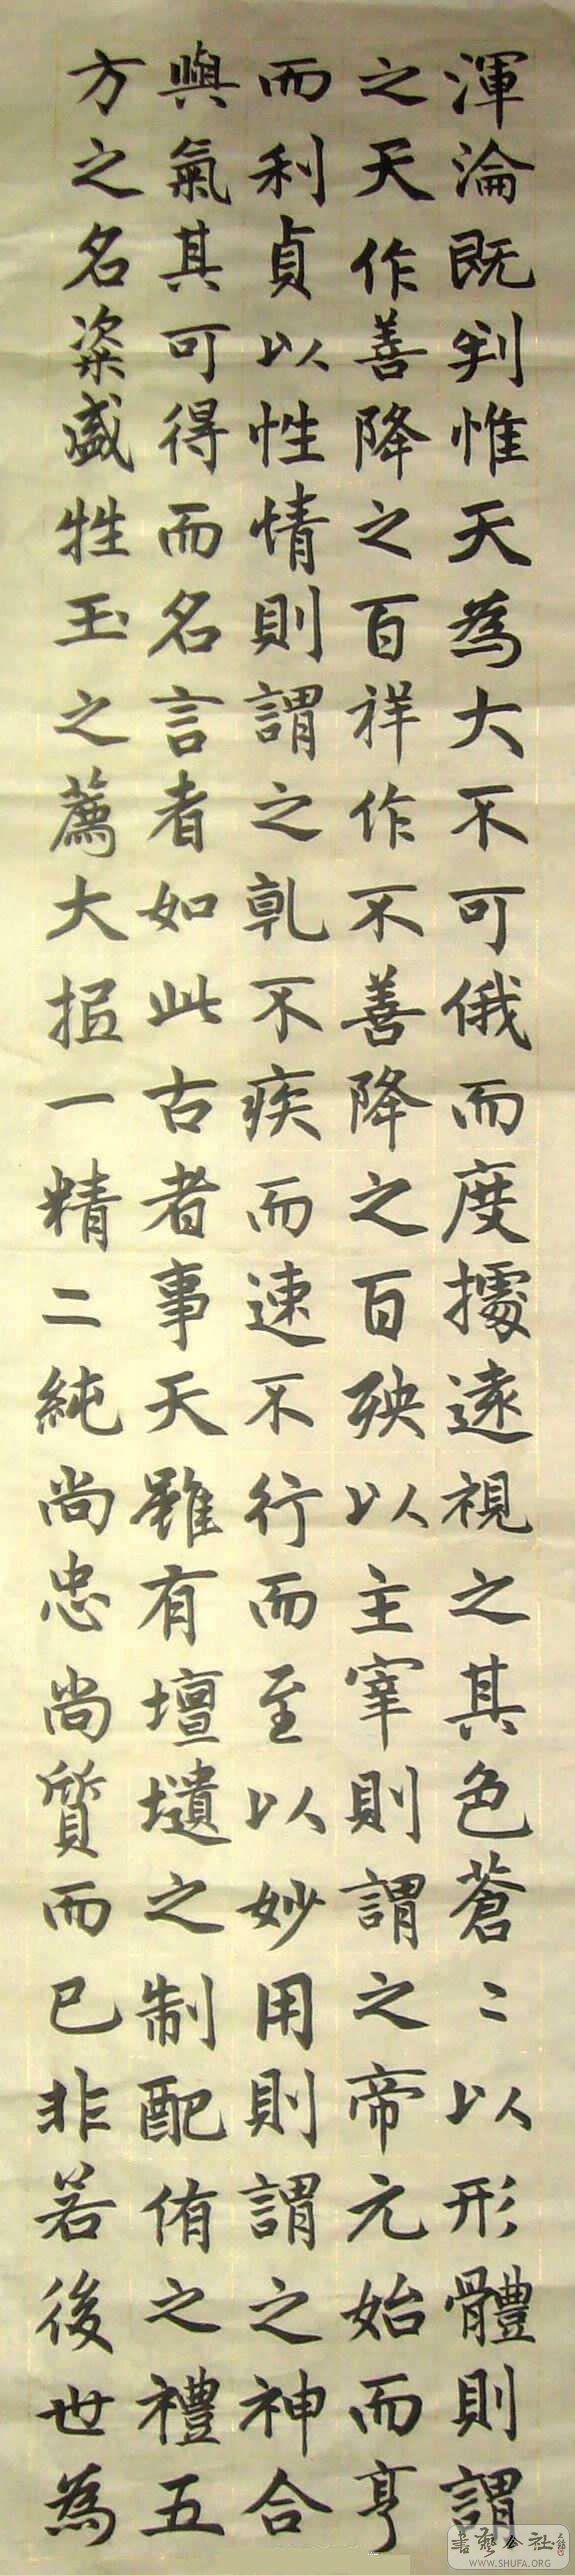 渾淪既判惟天為大不可俄而度據遠視之其色蒼〻以形體則謂
之天作善降之百祥作不善降之百殃以主宰則謂之帝元始而亨
而利貞以性情則謂之乹不疾而速不行而至以妙用則謂之神合
與氣其可得而名言者如此古者事天雖有壇壝之制配侑之禮五
方之名粢盛牲玉之薦大抵一精二純尚忠尚質而已非若後世為
書藝公社
WWW.SHUFA.ORG